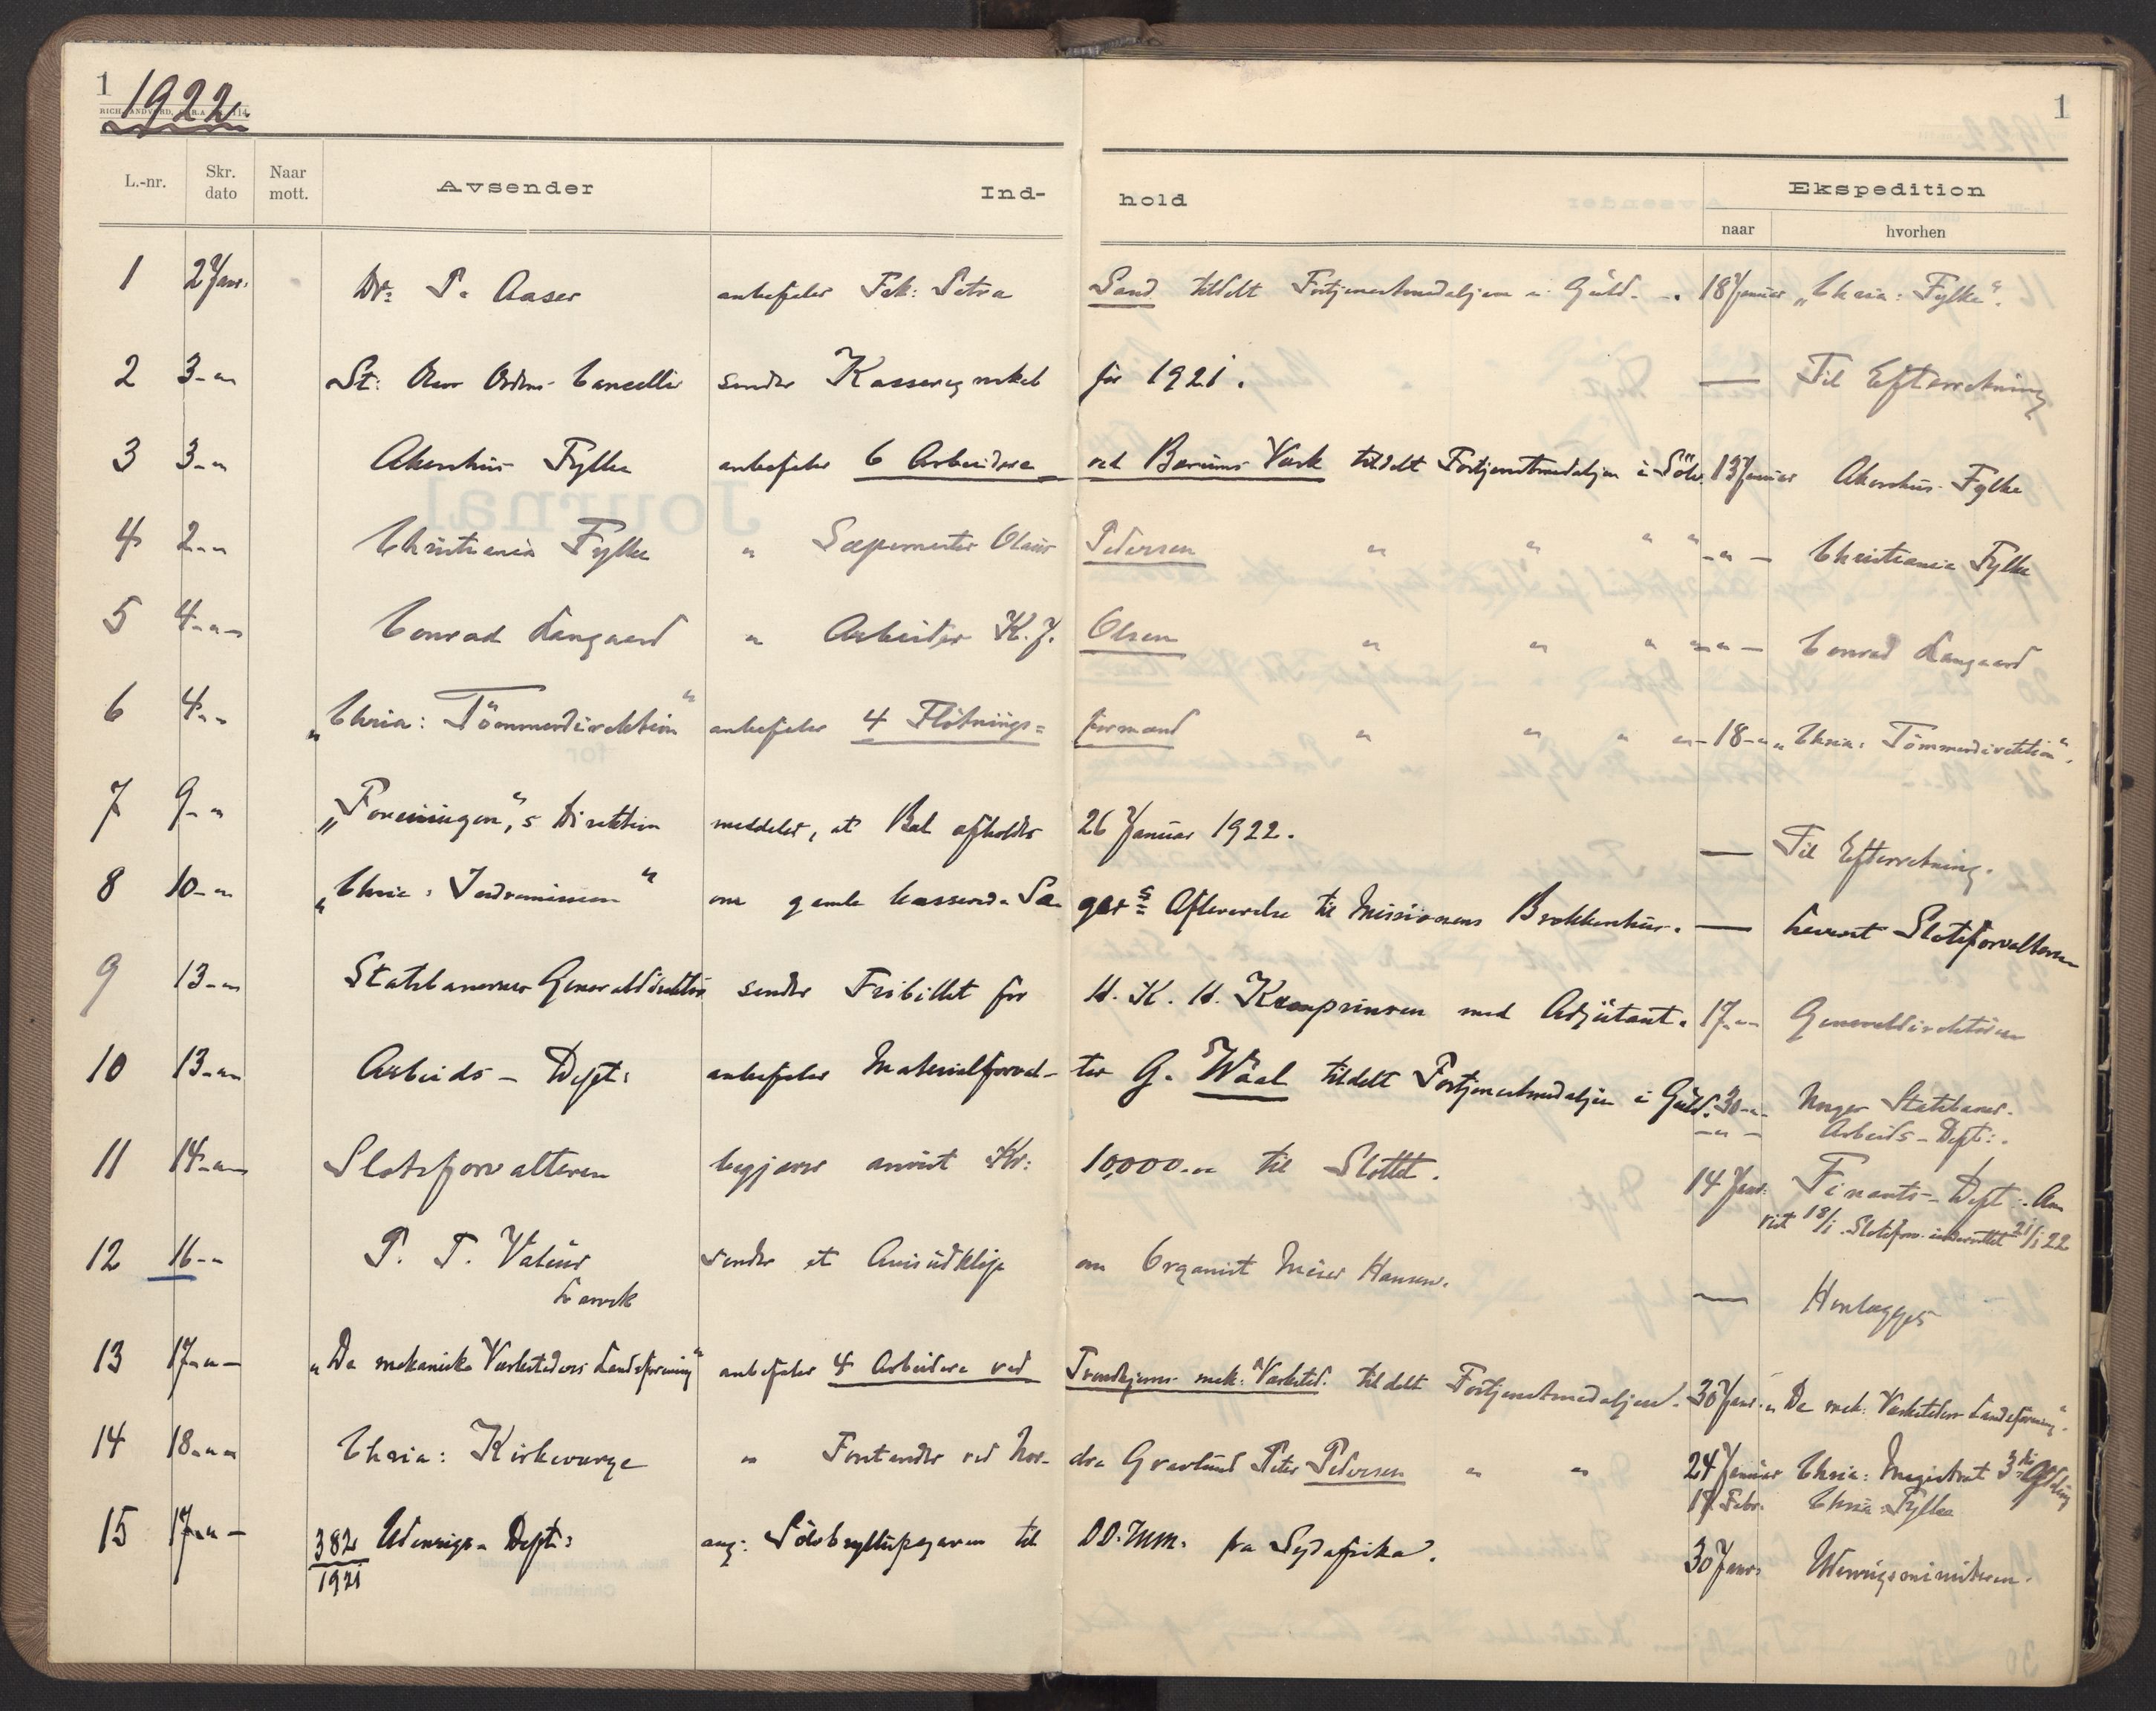 1
1922
1
L.-nr. Skr. dato Naar mott. Avsender Ind- hold Ekspedition naar hvorhen
1 2 Janr. Dr: P. Aaser anbefaler Frk: Petra Sand tildelt Fortjenestmedaljen i Guld. 18 Januar „Chria: Fylke“.
2 3-„ St: Olavs Ordens Cancelli sender Kasseregnskab for 1921. — Til Efterretning
3 3-„ Akershus Fylke anbefaler 6 Arbeidere ved Bærums Verk tildelt Fortjenstmedaljen i Sölv. 13 Januar Akershus Fylke
4 2-„ Christiania Fylke „ Sæpemester Olaus Pedersen „ „ „ „ -„- Christiania Fylke
5 4-„- Conrad Langaard „ Arbeider K. J. Olsen „ „ „ „ -„- Conrad Langaard
6 4-„ „Chria: Tömmerdirektion“ anbefaler 4 Flötnings= formænd „ „ „ „ -18-„ „Chria: Tömmerdirektion“.
7 9-„ „Foreningen“,s Direktion meddeler, at Bal afholdes 26 Januar 1922. — Til Efterretning.
8 10-„ „Chria: Indremission“ om gamle kasserede Sa- ger's Afleverelse til Missionens Brokkenhus. — Leveret Slotsforvalteren
9 13-„ Statsbanernes Generaldirektör sender Fribillet for H. K. H. Kronprinsen med Adjutant. 17-„ Generaldirektören
10 13-„ Arbeids-Dept: anbefaler Materialforval- ter G. Wäal tildelt Fortjenestmedaljen i Guld. 30-„- Norges Statsbaner.
-„- Arbeids-Dept:.
11 14-„- Slotsforvalteren begjærer anvist Kr: 10,000.„ til Slottet. 14 Janr: Finants-Dept:. An-
vist 18/1. Slotsforv. underrettet 21/1 22
12 16-„ P. T. Valeur sender et Avisudklip om Organist Meier Hansen.
Larvik — Henlægges
13 17-„- „De mekaniske Værksteders Landsforening“ anbefaler 4 Arbeidere ved Trondhjems mek: Værksted. tildelt Fortjenstmedaljen. 30 Janr. „De mek: Værksteders Landsforening“.
14 18-„- Chria: Kirkeverge „ Forstander ved Nor- dre Gravlund Peter Pedersen „ „ 24 Januar Chria: Magistrat 3die Afdeling
17. Febr. Chria: Fylke
15 17-„- 382/1921 Udenrigs-Dept: ang: Sölvbryllupsgaven til DD.MM. fra Sydafrika. 30 Janr. Udenrigsministeren.